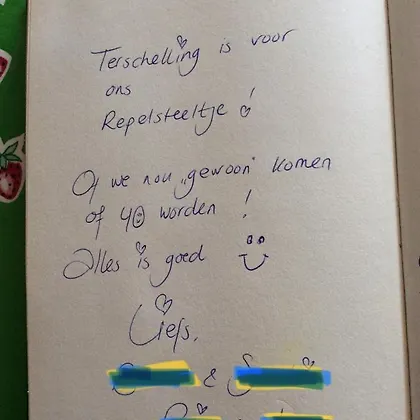 Terschelling is voor
ons
Repelsteeltje!
Of we nou „gewoon" komen
of 40 worden!
Alles is goed
Liefs,
&